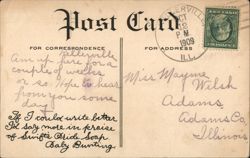 Post Card
FOR CORRESPONDENCE
FOR ADDRESS
OCT
P M
1909
ILL.
Am up here for a
couple of weeks
or so. Hope to hear
from you some
day.
Miss Mayme
Welsh
Adams
Adams Co.
Illinois
If I could write better
I'd say more in praise
of Swift's Pride Soap
Baby Bunting.